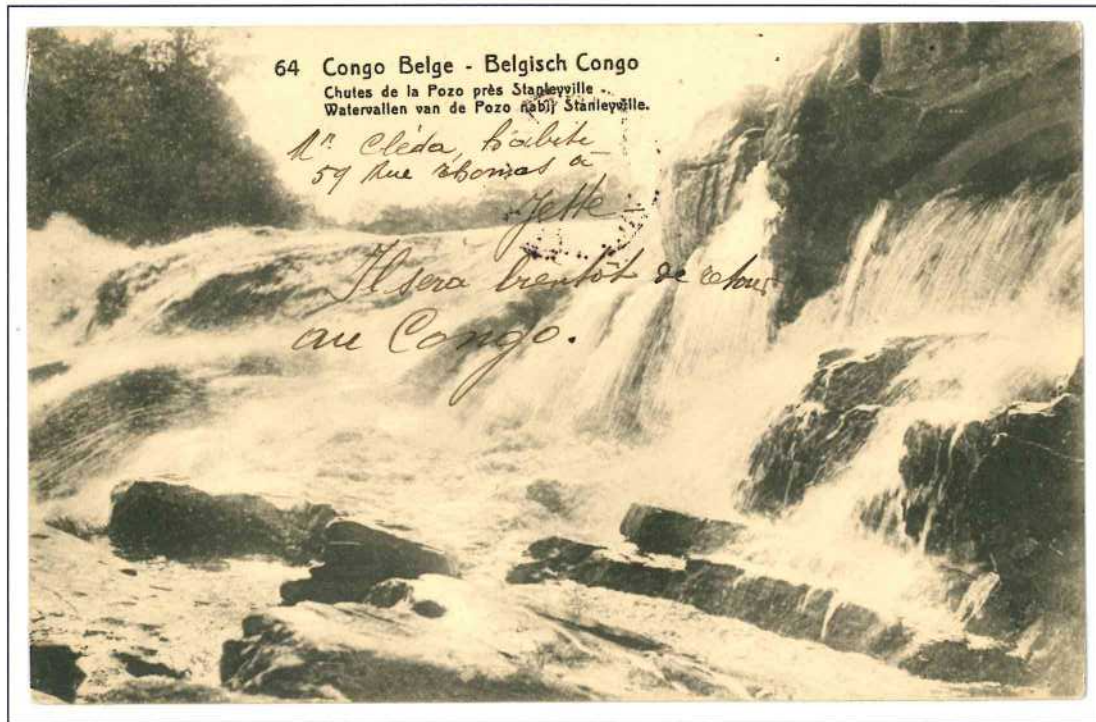 64 Congo Belge - Belgisch Congo
Chutes de la Pozo près Stanleyville -
Watervallen van de Pozo nabij Stanleyville.
Mr Cléda, habite
59 Rue Thomas à
Jette -
Il sera bientôt de retour
au Congo.